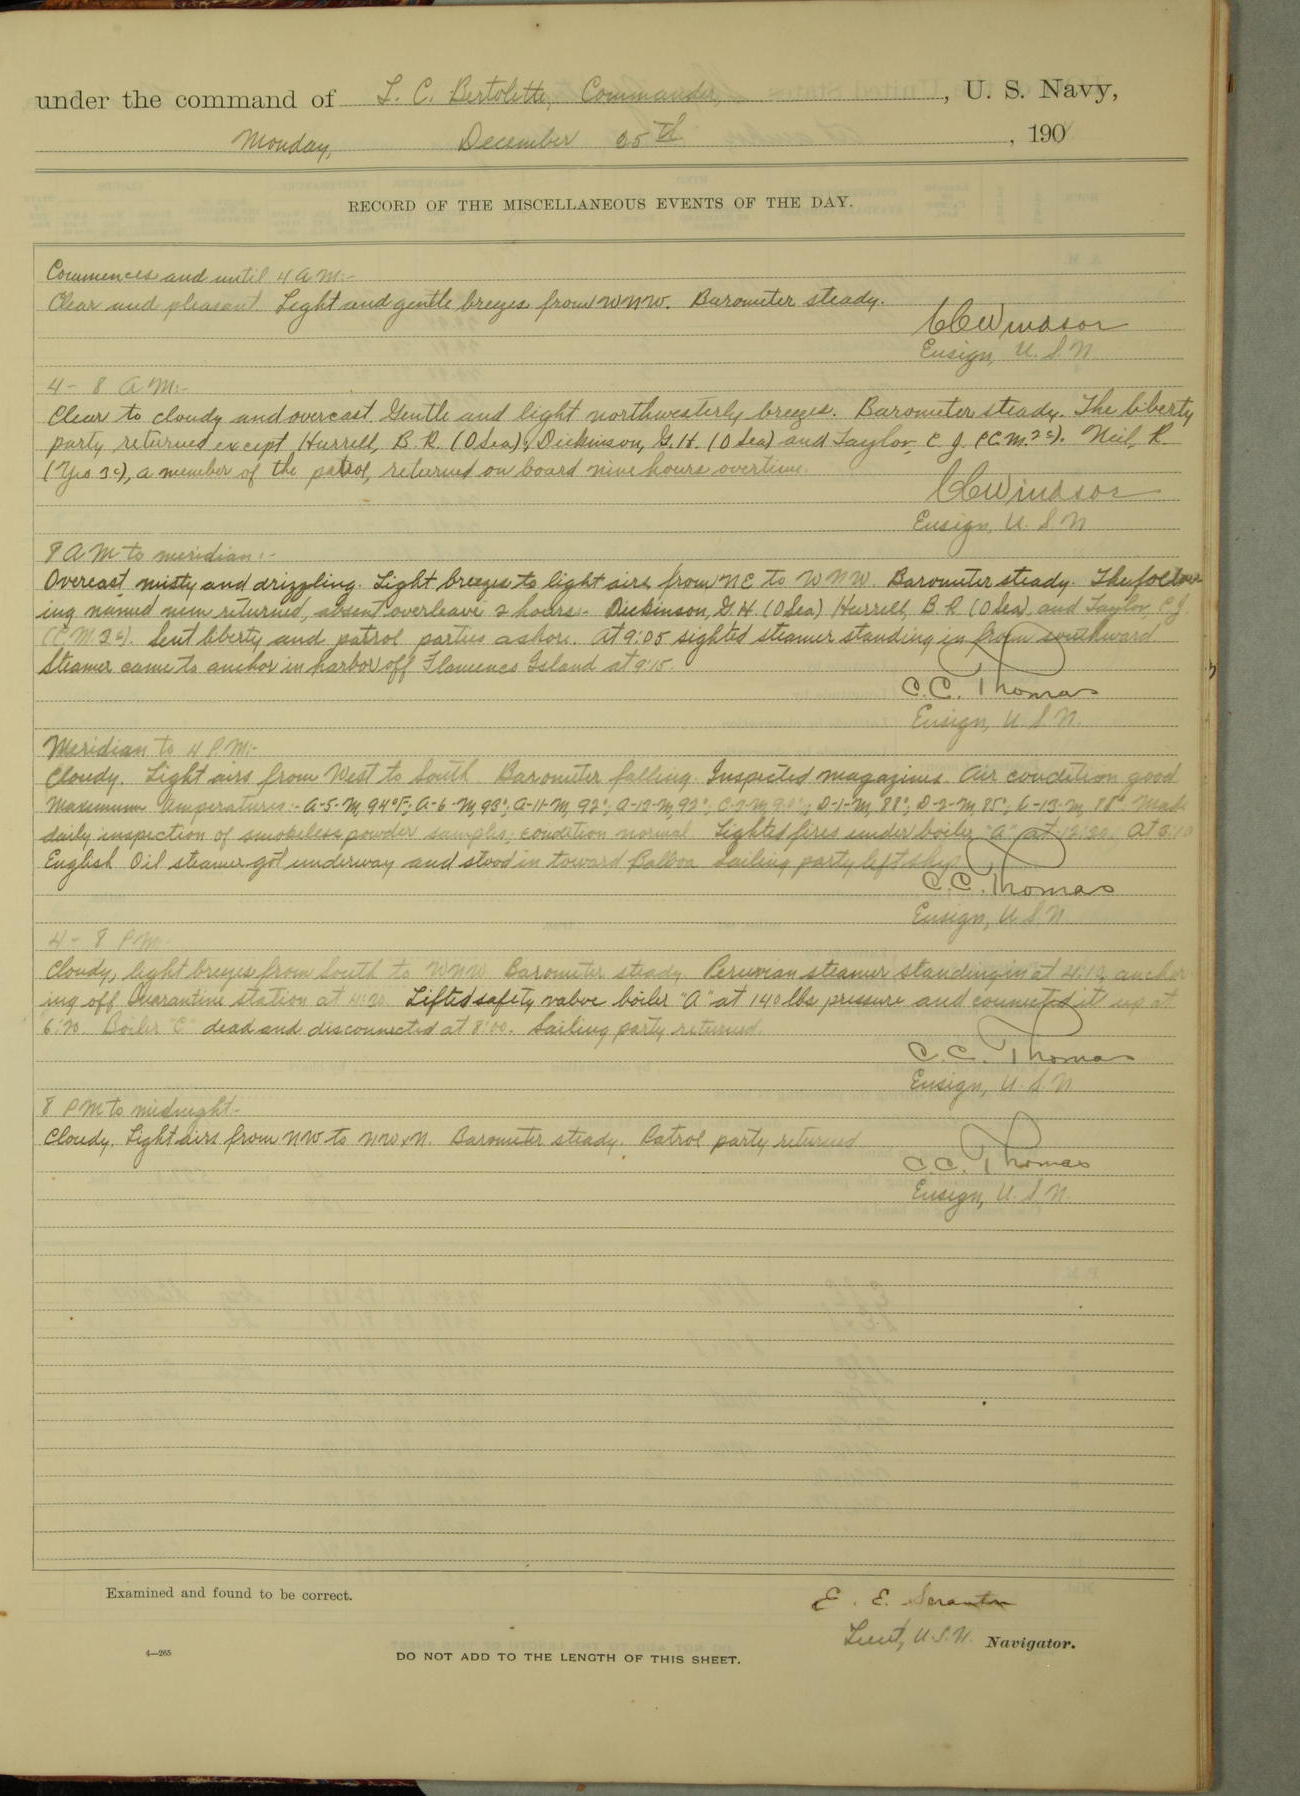 under the command of L. C. Bertolette, Commander, U. S. Navy,
Monday, December 25th, 190
RECORD OF THE MISCELLANEOUS EVENTS OF THE DAY.
Commences and until 4 A.M:-
Clear and pleasant. Light and gentle breezes from WNW. Barometer steady.
CCWindsor
Ensign, U. S. N.
4 - 8 A.M:-
Clear to cloudy and overcast. Gentle and light northwesterly breezes. Barometer steady. The liberty
party returned except Hurrell, B. R. (O Sea), Dickinson, G. H. (O Sea) and Taylor, C. J. (C.M.2c). Neil, R.
(Yeo 3c), a member of the patrol, returned on board nine hours overtime.
CCWindsor
Ensign, U. S. N.
8 AM to meridian:-
Overcast, misty and drizzling. Light breezes to light airs from NE to WNW. Barometer steady. The follow-
ing named men returned, absent overleave 2 hours:- Dickinson, G. H. (O Sea) Hurrell, B. R. (O Sea), and Taylor, C. J.
(C.M.2c). Sent liberty and patrol parties ashore. At 9:05 sighted steamer standing in from southward
Steamer came to anchor in harbor off Flamenco Island at 9:15.
C. C. Thomas
Ensign, U. S. N.
Meridian to 4 P.M:-
Cloudy. Light airs from West to South. Barometer falling. Inspected magazines. Air condition good
Maximum temperatures:- A-5-M, 94°F; A-6-M, 93°; A-11-M, 92°; A-12-M, 92°; C-2-M, 90°; D-1-M, 88°; D-2-M, 85°; A-13-M, 88°. Made
daily inspection of smokeless powder samples; condition normal. Lighted fires under boiler "A" at 12:30. At 3:10
English Oil steamer got underway and stood in toward Balboa. Sailing party left ship.
C. C. Thomas
Ensign, U. S. N.
4 - 8 P.M.-
Cloudy, light breezes from South to WNW. Barometer steady. Peruvian steamer standing in at 4:10, anchor-
ing off Quarantine station at 4:20. Lifted safety valve boiler "A" at 140 lbs pressure and connected it up at
6:20. Boiler "C" dead and disconnected at 8:00. Sailing party returned.
C. C. Thomas
Ensign, U. S. N.
8 PM to midnight:-
Cloudy. Light airs from NW to NWxN. Barometer steady. Patrol party returned
C. C. Thomas
Ensign, U. S. N.
Examined and found to be correct.
E. E. Scranton
Lieut, U.S.N. Navigator.
4—265
DO NOT ADD TO THE LENGTH OF THIS SHEET.